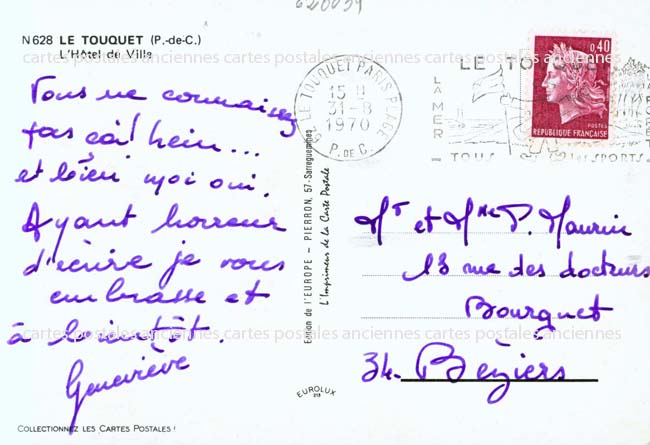 620039
N 628 LE TOUQUET (P.-de-C.)
L'Hôtel de Ville
cartes postales anciennes cartes postales anciennes cartes postales anciennes
Vous ne connaissez
pas çà ! hein...
et bien moi oui.
Ayant horreur
d'écrire je vous
embrasse et
à bientôt.
Geneviève
COLLECTIONNEZ LES CARTES POSTALES !
LE TOUQUET PARIS PLAGE
15 H
31-8
1970
P. DE C.
Edition de l'EUROPE — PIERRON, 57-Sarreguemines
L'Imprimeur de la Carte Postale
EUROLUX
LE TOUQUET
LA MER
TOUS SPORTS
0,40
POSTES
REPUBLIQUE FRANÇAISE
Mr et Mme P. Maurin
13 rue des docteurs
Bourguet
34. Béziers
cartes postales anciennes cartes postales anciennes cartes postales anciennes